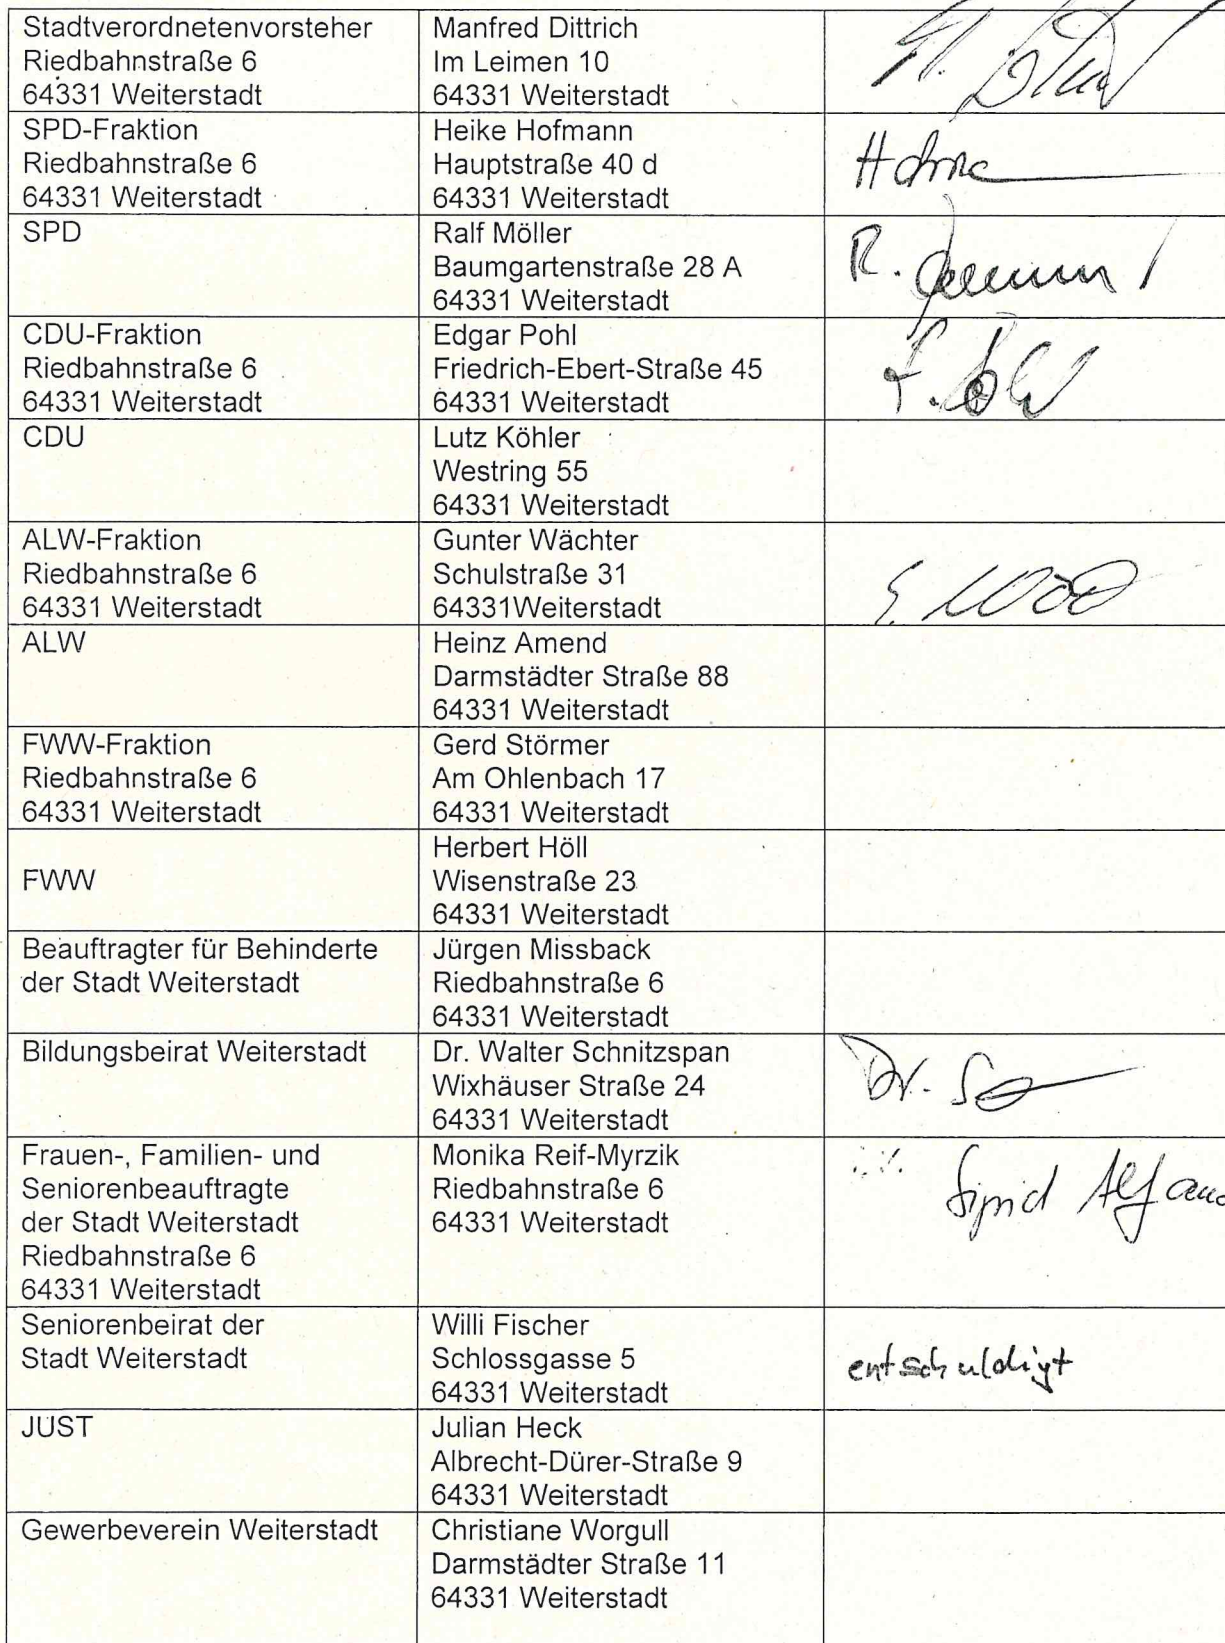 Stadtverordnetenvorsteher
Riedbahnstraße 6
64331 Weiterstadt
Manfred Dittrich
Im Leimen 10
64331 Weiterstadt
SPD-Fraktion
Riedbahnstraße 6
64331 Weiterstadt
Heike Hofmann
Hauptstraße 40 d
64331 Weiterstadt
SPD
Ralf Möller
Baumgartenstraße 28 A
64331 Weiterstadt
R.
CDU-Fraktion
Riedbahnstraße 6
64331 Weiterstadt
Edgar Pohl
Friedrich-Ebert-Straße 45
64331 Weiterstadt
CDU
Lutz Köhler
Westring 55
64331 Weiterstadt
ALW-Fraktion
Riedbahnstraße 6
64331 Weiterstadt
Gunter Wächter
Schulstraße 31
64331Weiterstadt
ALW
Heinz Amend
Darmstädter Straße 88
64331 Weiterstadt
FWW-Fraktion
Riedbahnstraße 6
64331 Weiterstadt
Gerd Störmer
Am Ohlenbach 17
64331 Weiterstadt
FWW
Herbert Höll
Wisenstraße 23
64331 Weiterstadt
Beauftragter für Behinderte
der Stadt Weiterstadt
Jürgen Missback
Riedbahnstraße 6
64331 Weiterstadt
Bildungsbeirat Weiterstadt
Dr. Walter Schnitzspan
Wixhäuser Straße 24
64331 Weiterstadt
Dr.
Frauen-, Familien- und
Seniorenbeauftragte
der Stadt Weiterstadt
Riedbahnstraße 6
64331 Weiterstadt
Monika Reif-Myrzik
Riedbahnstraße 6
64331 Weiterstadt
Sigrid
Seniorenbeirat der
Stadt Weiterstadt
Willi Fischer
Schlossgasse 5
64331 Weiterstadt
entschuldigt
JUST
Julian Heck
Albrecht-Dürer-Straße 9
64331 Weiterstadt
Gewerbeverein Weiterstadt
Christiane Worgull
Darmstädter Straße 11
64331 Weiterstadt